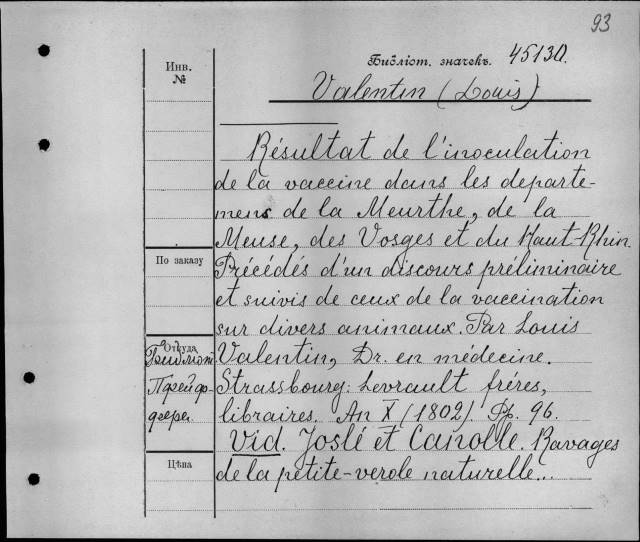 93
Библіот. значекъ. 45130.
Инв.
№
Valentin (Louis)
Résultat de l'inoculation
de la vaccine dans les departe-
mens de la Meurthe, de la
Meuse, des Vosges et du Haut-Rhin
По заказу
Précédés d'un discours préliminaire
et suivis de ceux de la vaccination
sur divers animaux. Par Louis
Откуда
Библіот.
Valentin, Dr. en médecine.
Пфейф-
Strassbourg: Levrault fréres,
фера.
libraires. An X (1802). Pp. 96.
Vid. Joslé et Canolle. Ravages
Цѣна
de la petite-verole naturelle...